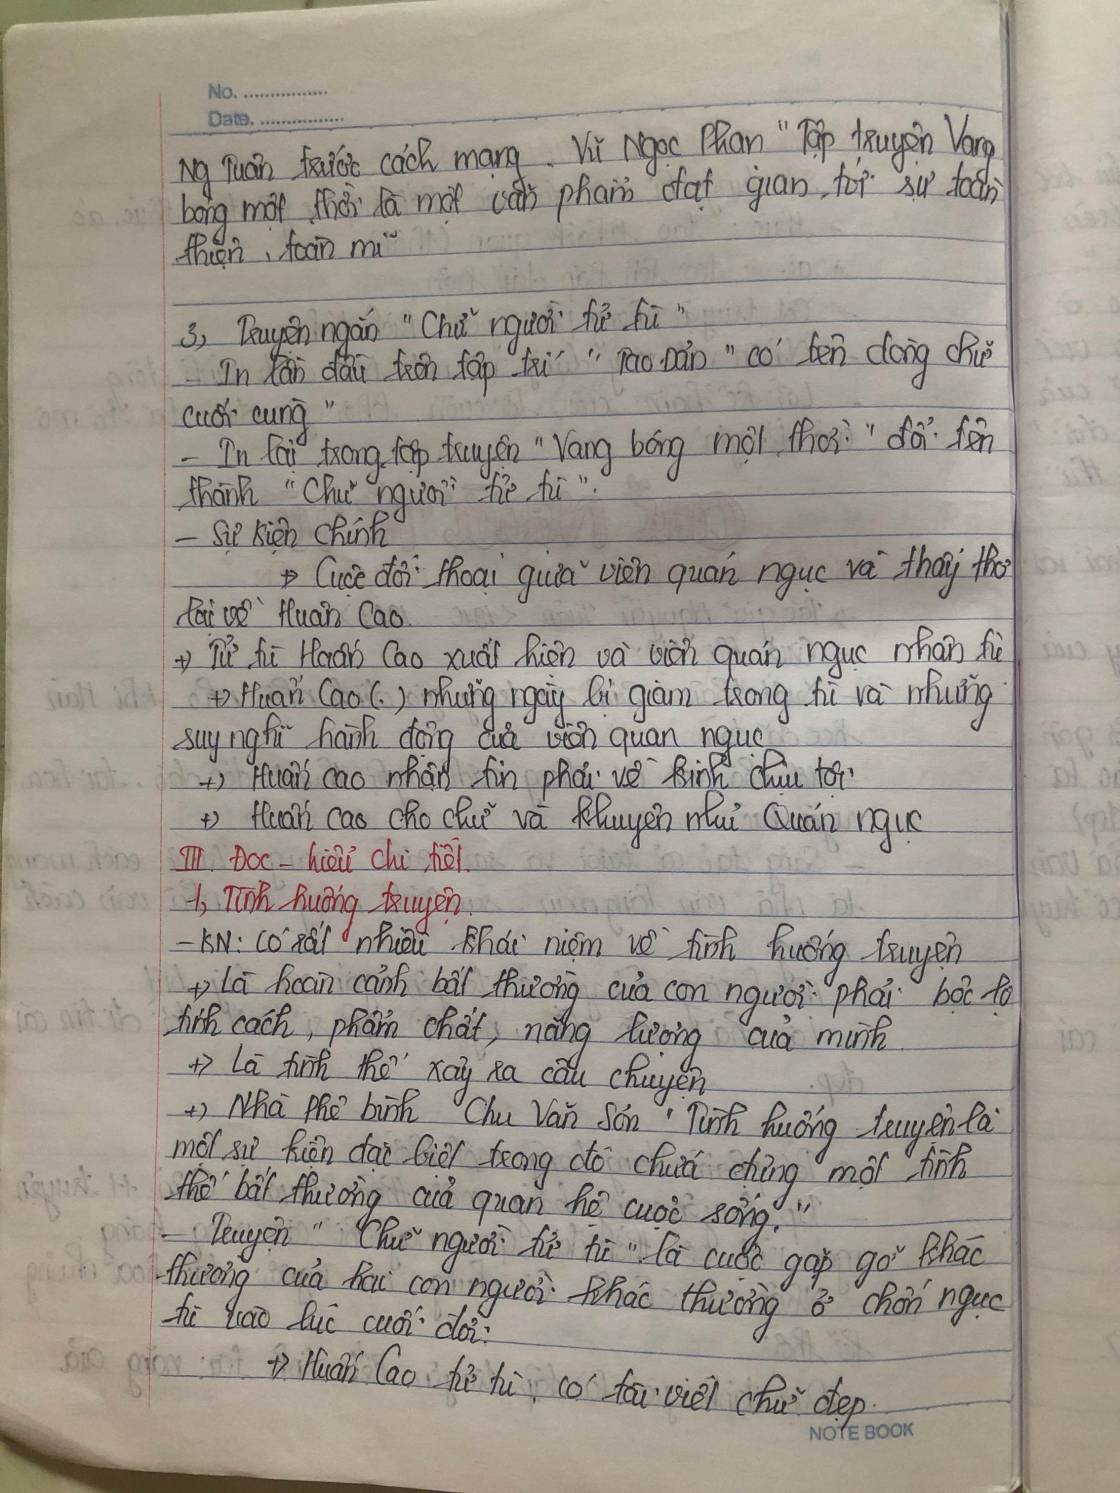 No. ................
Date. ................
Ng Tuân trước cách mạng. Vũ Ngọc Phan "Tập truyện Vang
bóng một thời là một văn phẩm đạt gần tới sự toàn
thiện, toàn mĩ
3, Truyện ngắn "Chữ người tử tù"
- In lần đầu trên tạp trí "Tao Đàn" có tên dòng chữ
cuối cùng"
- In lại trong tập truyện "Vang bóng một thời" đổi tên
thành "Chữ người tử tù".
- Sự kiện chính
+) Cuộc đối thoại giữa viên quản ngục và thầy thơ
lại về Huấn Cao.
+) Tử tù Huấn Cao xuất hiện và viên quản ngục nhận tù
+) Huấn Cao (.) những ngày bị giam trong tù và những
suy nghĩ hành động của viên quan ngục
+) Huấn cao nhận tin phải về kinh chịu tội
+) Huấn cao cho chữ và khuyên nhủ Quản ngục
III. Đọc - hiểu chi tiết.
1, Tình huống truyện.
- KN: Có rất nhiều khái niệm về tình huống truyện
+) Là hoàn cảnh bất thường của con người phải bộc lộ
tính cách, phẩm chất, năng lượng của mình
+) Là tình thế xảy ra câu chuyện
+) Nhà phê bình Chu Văn Sơn "Tình huống truyện là
một sự kiện đặc biệt trong đó chứa đựng một tình
thế bất thường của quan hệ cuộc sống."
- Truyện "Chữ người tử tù" là cuộc gặp gỡ khác
thường của hai con người khác thường ở chốn ngục
tù vào lúc cuối đời:
+) Huấn Cao tử tù, có tài viết chữ đẹp.
NOTE BOOK